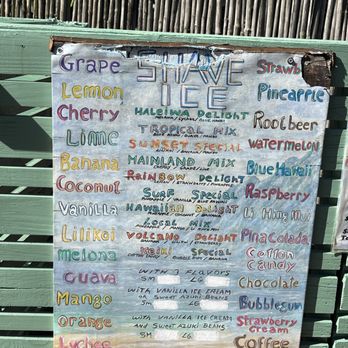 SHAVE
ICE
Grape
Lemon
Cherry
Lime
Banana
Coconut
Vanilla
Lilikoi
melona
Guava
Mango
orange
Lychee
HALEIWA DELIGHT
TROPICAL MIX
SUNSET SPECIAL
MAINLAND MIX
RAINBOW DELIGHT
SURF SPECIAL
Hawaiian Delight
LOCAL MIX
VOLCANO DELIGHT
KEIKI SPECIAL
WITH 3 FLAVORS
SM LG
WITH VANILLA ICE CREAM
OR SWEET AZUKI BEANS
SM LG
WITH VANILLA ICE CREAM
AND SWEET AZUKI BEANS
SM LG
Strawb
Pineapple
Rootbeer
watermelon
Blue Hawaii
Raspberry
Li Hing Mui
Pina Colada
Cotton
Candy
Chocolate
Bubblegum
Strawberry
Cream
Coffee